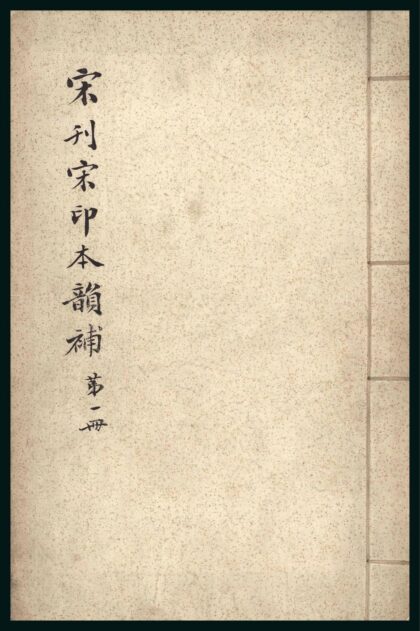 宋刊宋印本韻補 第一冊